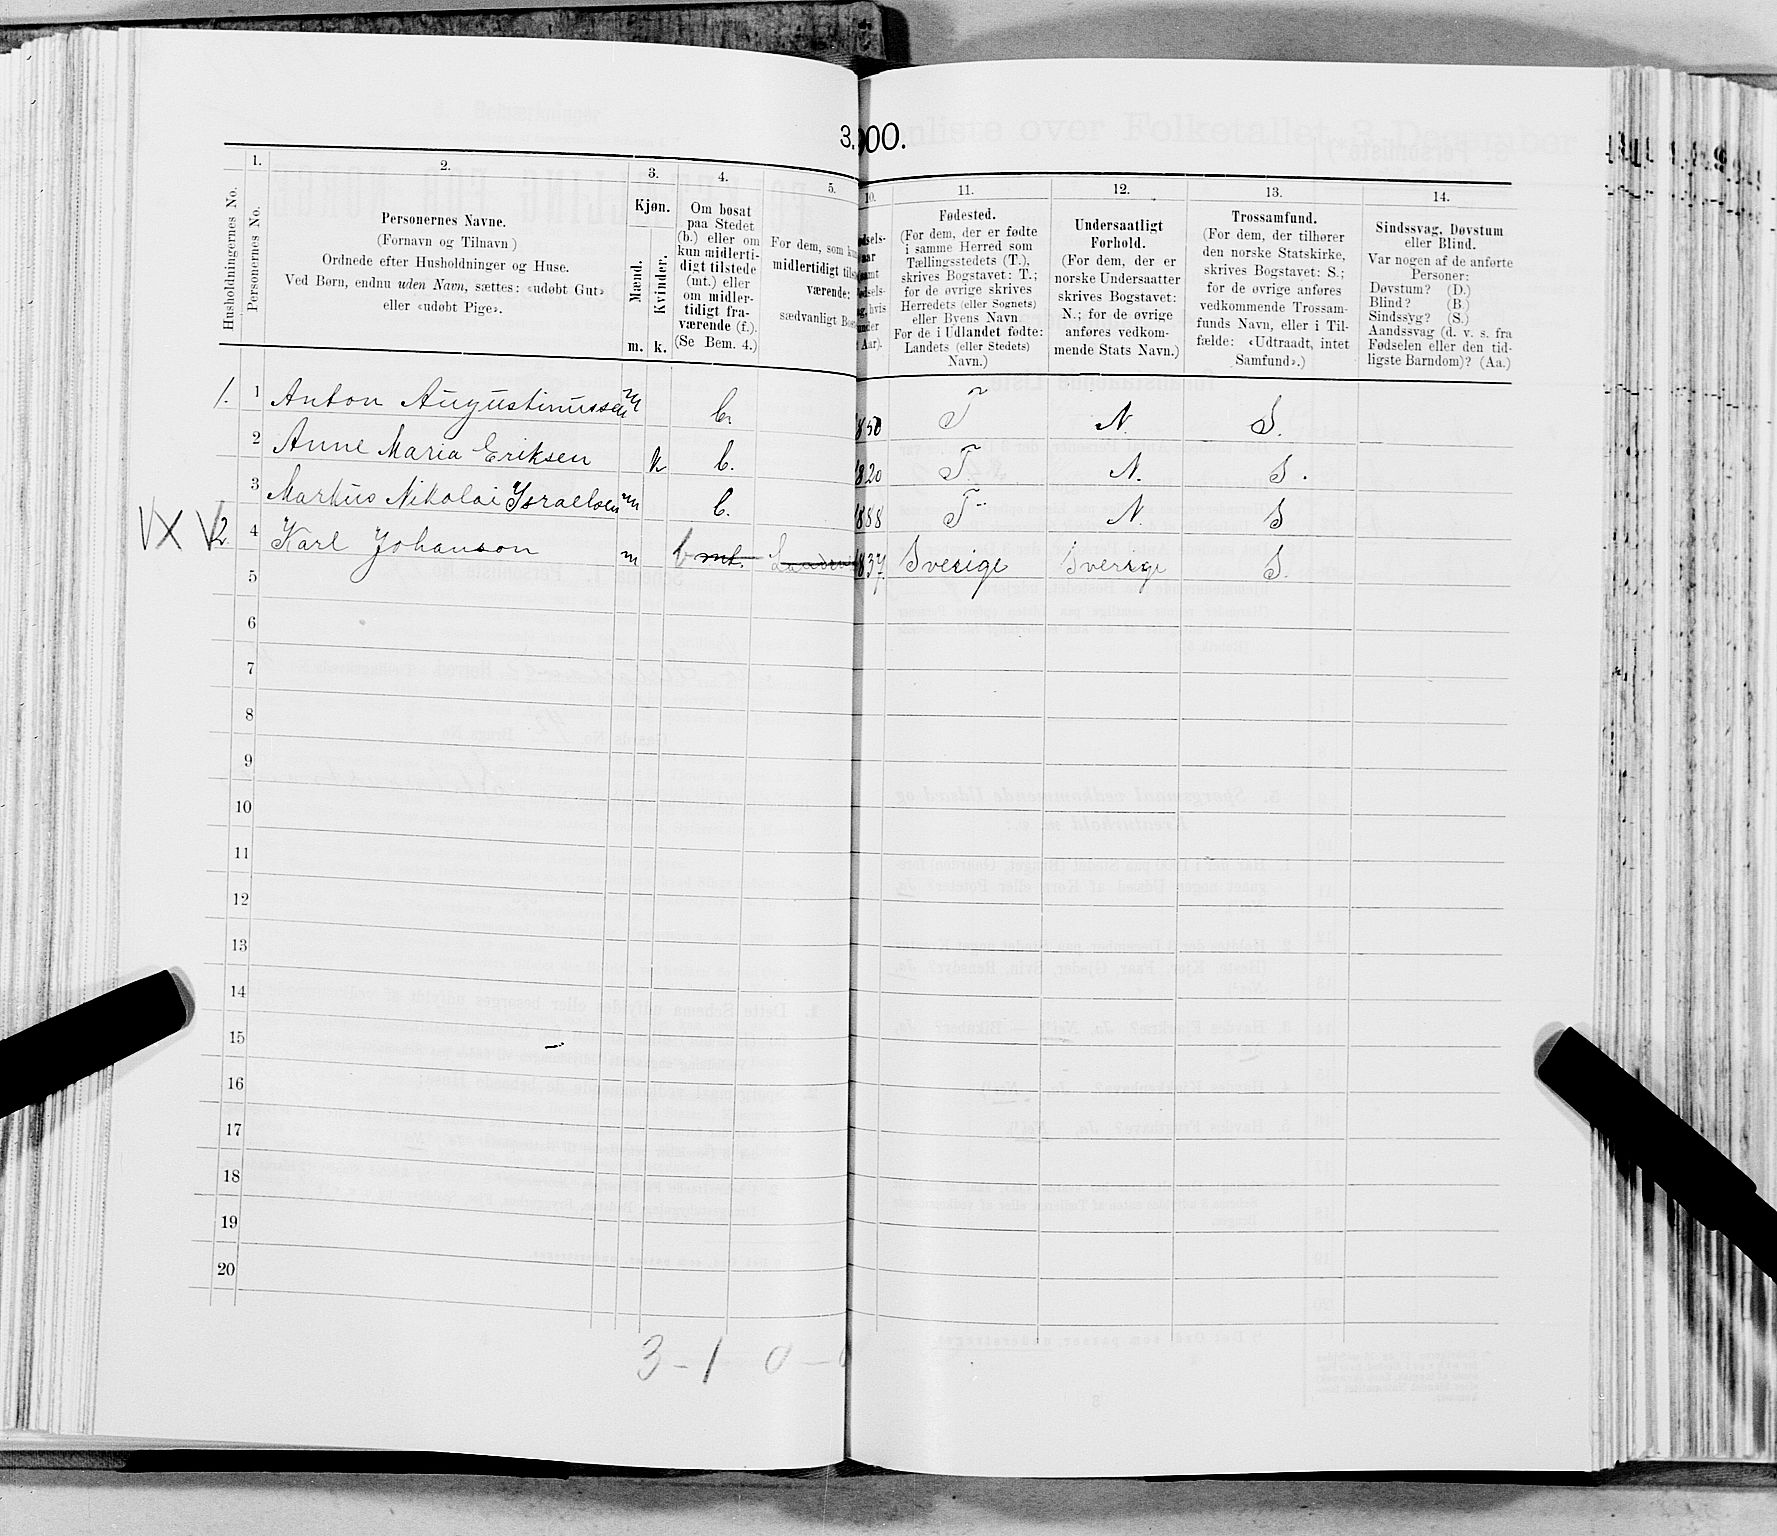 3.00.
1. 2. 3. 4. 5. 10. 11. 12. 13. 14.
Husholdningernes No.
Personernes No.
Personernes Navne.
(Fornavn og Tilnavn)
Ordnede efter Husholdninger og Huse.
Ved Børn, endnu uden Navn, sættes: «udøbt Gut»
eller «udøbt Pige».
Kjøn.
Mænd.
Kvinder.
m. k.
Om bosat
paa Stedet
(b.) eller om
kun midlerti-
digt tilstede
(mt.) eller
om midler-
tidigt fra-
værende (f.).
(Se Bem. 4.)
For dem, som kun
midlertidigt
værende:
sædvanligt
Fødested.
(For dem, der er fødte
i samme Herred som
Tællingsstedets (T.),
skrives Bogstavet: T.;
for de øvrige skrives
Herredets (eller Sognets)
eller Byens Navn.
For de i Udlandet fødte:
Landets (eller Stedets)
Navn.)
Undersaatligt
Forhold.
(For dem, der er
norske Undersaatter
skrives Bogstavet:
N.; for de øvrige
anføres vedkom-
mende Stats Navn.)
Trossamfund.
(For dem, der tilhører
den norske Statskirke,
skrives Bogstavet: S.;
for de øvrige anføres
vedkommende Trossam-
funds Navn, eller i Til-
fælde: «Udtraadt, intet
Samfund».)
Sindssvag, Døvstum
eller Blind.
Var nogen af de anførte
Personer:
Døvstum? (D.)
Blind? (B.)
Sindssyg? (S.)
Aandssvag (d. v. s. fra
Fødselen eller den tid-
ligste Barndom)? (Aa.)
1. 1 Anton Augustinussen m b. 850 T N. S.
2 Anne Maria Eriksen k b. 820 T. N. S.
3 Markus Nikolai Israelsen m b. 888 T N. S
2. 4 Karl Johanson m b mt. 837. Sverige Sverige S.
5
6
7
8
9
10
11
12
13
14
15
16
17
18
19
20
3-1 0-